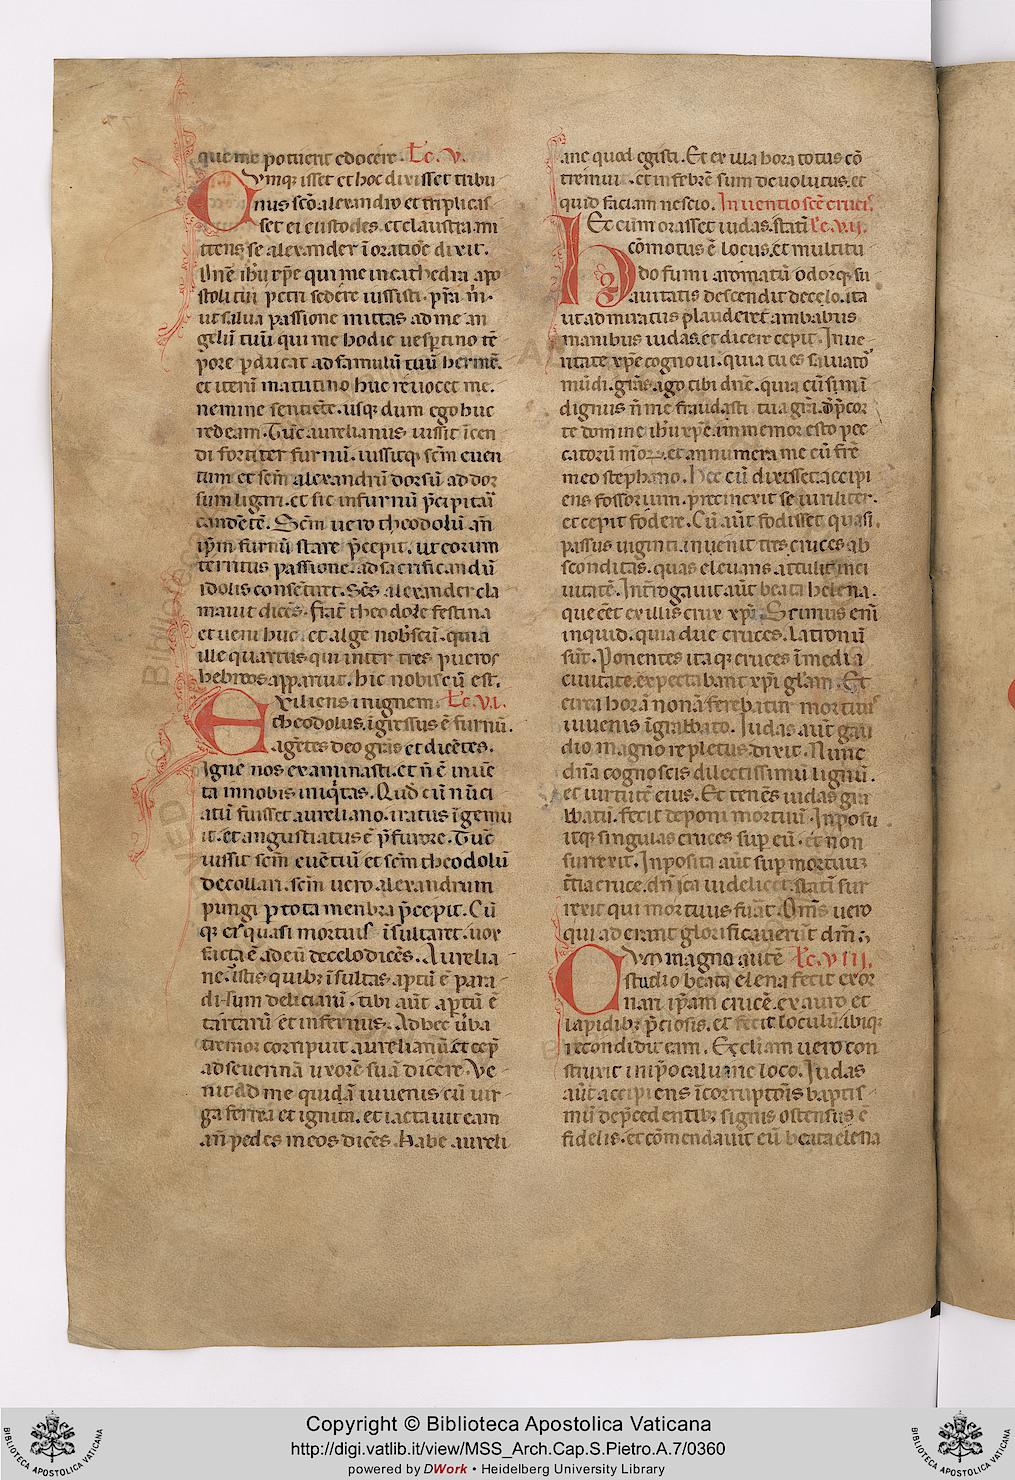 que me potuerit edocere. Lc. V.
Cvmq; isset et hoc dixisset tribu
nus scō alexandro et triplicas
set ei custodes. et claustra mi
ttens se alexander ī oratiōe dixit.
Dn̄e ih̄u xp̄e qui me in cathedra apo
stoli tui petri sedere iussisti.
ut salua passione mittas ad me an
gelū tuū qui me hodie uesp̄tino tē
pore p̄ducat ad famulū tuū hermē.
et iterū matutino huc reuocet me.
nemine sentiēte. usq; dum ego huc
redeam. Tūc aurelianus iussit īcen
di fortiter furnū. iussitq; sc̄m euen
tium et sc̄m alexandrū dorsū ad dor
sum ligari. et sic in furnū p̄cipitari
candētē. Sc̄m uero theodolū an̄
ip̄m furnū stare p̄cepit. ut eorum
territus passione. ad sacrificandū
idolis consentiret. Sc̄s alexander cla
mauit dicēs. frat̄ theodore festina
et ueni huc. et alge nobiscū. quia
ille quartus qui inter tres pueros
hebreos apparuit. hic nobiscū est.
Exiliens in ignem. Lc. VI.
theodolus. īgressus ē furnū.
agētes deo gr̄as et dicētes.
Igne nos examinasti. et n̄ ē inuē
ta in nobis iniq̄tas. Qd̄ cū nūci
atū fuisset aureliano. iratus īgemu
it. et angustiatus ē p̄ furore. Tūc
iussit sc̄m euētiū et sc̄m theodolū
decollari. sc̄m uero alexandrum
pungi p tota menbra p̄cepit. Cū
q; ei quasi mortuis īsultaret. uox
facta ē ad eū de celo dicēs. Aurelia
ne. istis quib; īsultas apertū ē para
disum deliciarū. tibi aūt apertū ē
tartarū et infernus. Ad hec ūba
tremor corripuit aurelianū. et cep̄
ad seuerinā uxorē suā dicere. Ve
nit ad me quidā iuuenis cū uir
ga ferrea et ignita. et iactauit eam
an̄ pedes meos dicēs. Habe aureli
ane quod egisti. Et ex illa hora totus cō
tremui. et in febrē sum deuolutus. et
quid faciam nescio. Inuentio sc̄e crucis.
Et cum orasset iudas. statī Lc. VII.
cōmotus ē locus. et multitu
do fumi aromatū odorq; su
auitatis descendit de celo. ita
ut admiratus plauderet ambabus
manibus iudas. et dicere cepit. In ue
ritate xp̄e cognoui. quia tu es saluator
mūdi. gr̄as ago tibi dn̄e. quia cū sim ī
dignus n̄ me fraudasti tua gr̄a. dep̄cor
te domine ih̄u xp̄e. inmemor esto pec
catorū meorum. et annumera me cū fr̄e
meo stephano. Hec cū dixisset. accipi
ens fossorium. precinxit se uiriliter.
et cepit fodere. Cū aūt fodisset quasi
passus uiginti. inuenit tres cruces ab
sconditas. quas eleuans attulit in ci
uitatē. Int̄rogauit aūt beata helena.
que eēt ex illis crux xp̄i. Scimus enī
inquid. quia due cruces. latronū
sūt. Ponentes itaq; cruces ī media
ciuitate. expectabant xp̄i gl̄am. Et
circa horā nonā ferebatur mortuus
iuuenis ī grabbato. Iudas aūt gau
dio magno repletus dixit. Nunc
dn̄a cognoscis dilectissimū lignū.
et uirtutē eius. Et tenēs iudas gra
bbatū. fecit deponi mortuū. Inposu
itq; singulas cruces sup̄ eū. et non
surrexit. Inposita aūt sup̄ mortuum
t̄tia cruce. dn̄ica uidelicet. statī sur
rexit qui mortuus fuāt. Omēs uero
qui aderant glorificauerūt dm̄.
Cvm magno autē Lc. VIII.
studio beata elena fecit exor
nari ip̄am crucē. ex auro et
lapidib; p̄ciosis. et fecit loculū. ibiq;
recondidit eam. Ecclīam uero con
struxit in ip̄o caluarie loco. Iudas
aūt accipiens īcorruptōis baptis
mū de p̄cedentib; signis ostensus ē
fidelis. et cōmendauit eū beata elena
Copyright © Biblioteca Apostolica Vaticana
http://digi.vatlib.it/view/MSS_Arch.Cap.S.Pietro.A.7/0360
powered by DWork • Heidelberg University Library
BIBLIOTECA APOSTOLICA VATICANA
BIBLIOTECA APOSTOLICA VATICANA